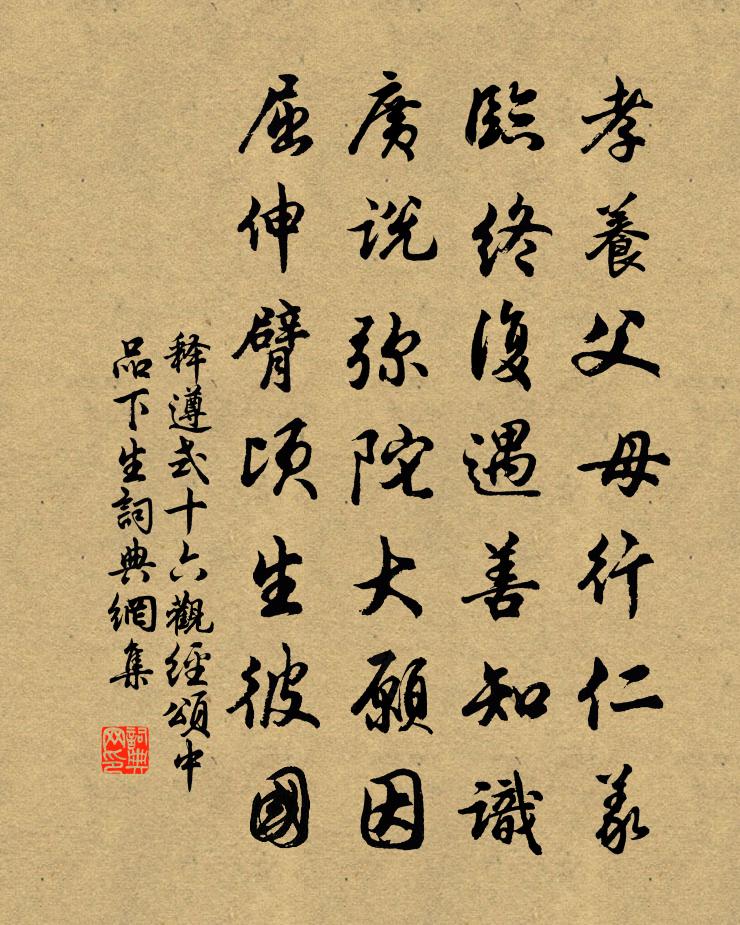 孝養父母行仁義
臨終復遇善知識
廣說弥陀大願因
屈伸臂頃生彼國
释遵式十六觀經頌中
品下生詞典網集
詞典
网印